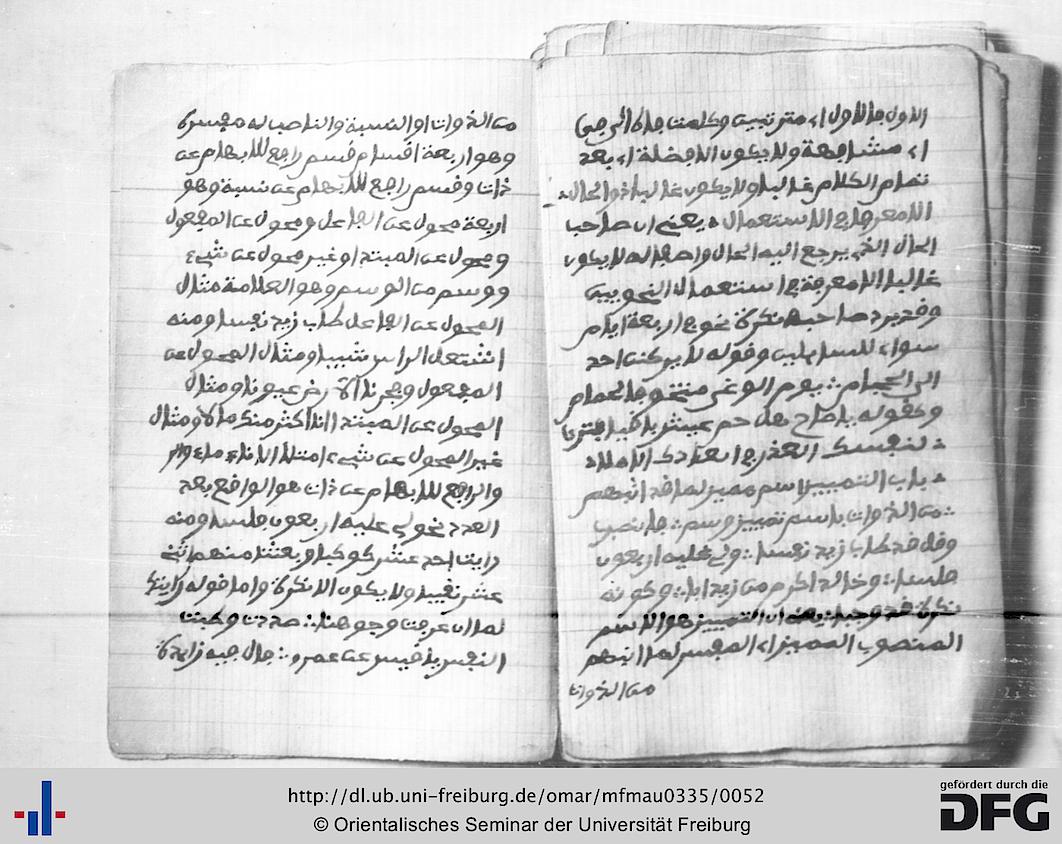 الاول فالاول اي مترتبين وكلمت فاه الى في
اي مشافهة ولا يكون الا فضلة اي بعد
تمام الكلام غالبا ولا يكون غالبا ذو الحال
الا معرفا في الاستعمال يعني ان صاحب
الحال الذي يرجع اليه الحال واصفا له لا يكون
غالبا الا معرفة في استعمال النحويين
وقد يرد صاحبها نكرة نحو في اربعة ايام
سواء للسائلين وقوله لا يركنن احد
الى الاحجام يوم الوغى متخوفا لحمام
وكقوله يا صاح هل حم عيش باقيا فترى
لنفسك العذر في ابعادك الاملا
باب التمييز اسم مميز لما قد انبهم
من الذوات باسم تمييز وسم فانصب
وقل قد طاب زيد نفسا ولي عليه اربعون
فلسا وخالد اكرم من زيد ابا وكونه
نكرة قد وجبا يعني ان التمييز هو الاسم
المنصوب المميز اي المفسر لما انبهم
من الذوات
من الذوات او النسبة والناصب له مفسره
وهو اربعة اقسام قسم رافع للابهام عن
ذات وقسم رافع للابهام عن نسبة وهو
اربعة محول عن الفاعل ومحول عن المفعول
ومحول عن المبتدا وغير محول عن شيء
ووسم من الوسم وهو العلامة مثال
المحول عن الفاعل طاب زيد نفسا ومنه
اشتعل الراس شيبا ومثال المحول عن
المفعول وفجرنا الارض عيونا ومثال
المحول عن المبتدا انا اكثر منك مالا ومثال
غير المحول عن شيء امتلا الاناء ماء
والرافع للابهام عن ذات هو الواقع بعد
العدد نحو لي عليه اربعون فلسا ومنه
رايت احد عشر كوكبا وبعثنا منهم اثني
عشر نقيبا ولا يكون الا نكرة واما قوله رايتك
لما ان عرفت وجوهنا صددت وطبت
النفس يا قيس عن عمرو فال فيه زايدة
http://dl.ub.uni-freiburg.de/omar/mfmau0335/0052
© Orientalisches Seminar der Universität Freiburg
gefördert durch die
DFG